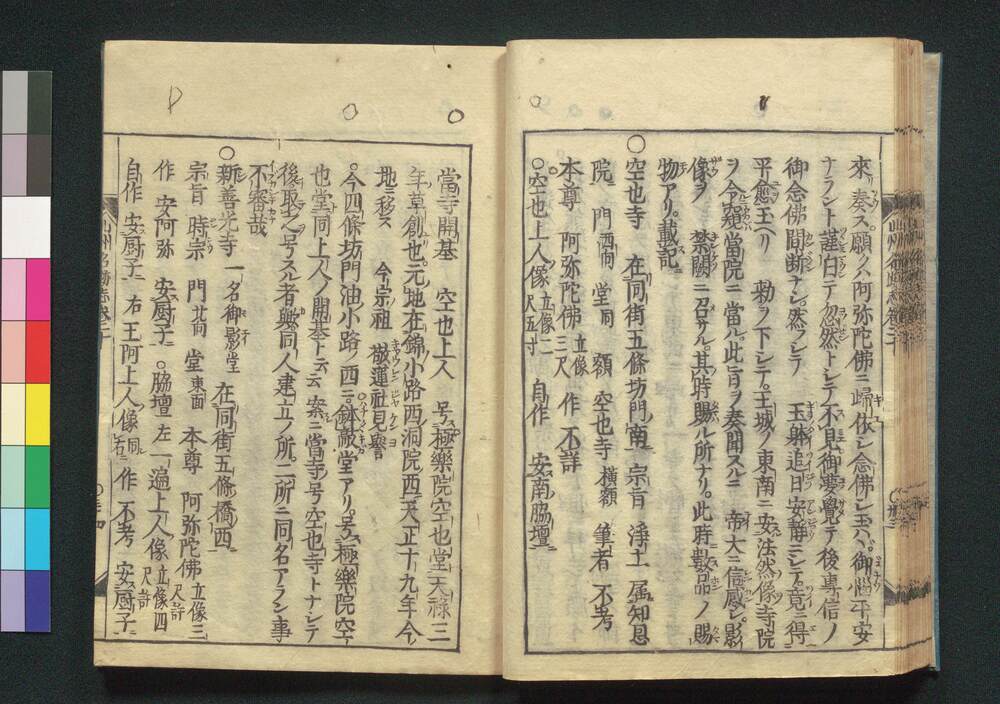 來奏ス。願クハ阿弥陀佛ニ歸依シ念佛シ玉ハヾ。御惱平安
ナラント謹白テ忽然トシテ不見御夢覺テ後專信ノ
御念佛間断ナシ。然シテ 玉躰追日安靜ニシテ。竟得
平愈玉ヘリ 勅ヲ下シテ。王城ノ東南ニ安法然像寺院
ヲ令窺當院ニ當ル。此旨ヲ奏聞スルニ 帝大ニ信感シ。影
像ヲ 禁闕ニ召サル。其時賜ル所ナリ。此時數品ノ賜
物アリ。載記ニ
○空也寺 在同街五條坊門南ニ 宗旨 淨土 属知恩
院ニ 門西向 堂同 額 空也寺橫額 筆者 不考
本尊 阿弥陀佛立像三尺 作 不詳
○空也上人像立像二尺五寸 自作 安南脇壇ニ
當寺開基 空也上人 号極樂院空也堂天祿三
年草創也。元地在錦小路西洞院西ニ天正十九年今
地ニ移ス 今宗祖 巌蓮社見譽
○今四條坊門油小路ノ西ニ。鉢敲堂アリ。号極樂院空
也堂同上人ノ開基ト云云 案ニ當寺号ヲ空也寺トナシテ
後取之号スル者歟同人建立ノ所。二所ニ同名アラン事
不審哉
○新善光寺 一名御影堂 在同街五條橋西ニ
宗旨 時宗 門北向 堂東面 本尊 阿弥陀佛立像三尺許
作 安阿弥 安厨子ニ ○脇壇 左 一遍上人像立像四尺許
自作 安厨子ニ 右 王阿上人像同 作 不考 安厨子ニ